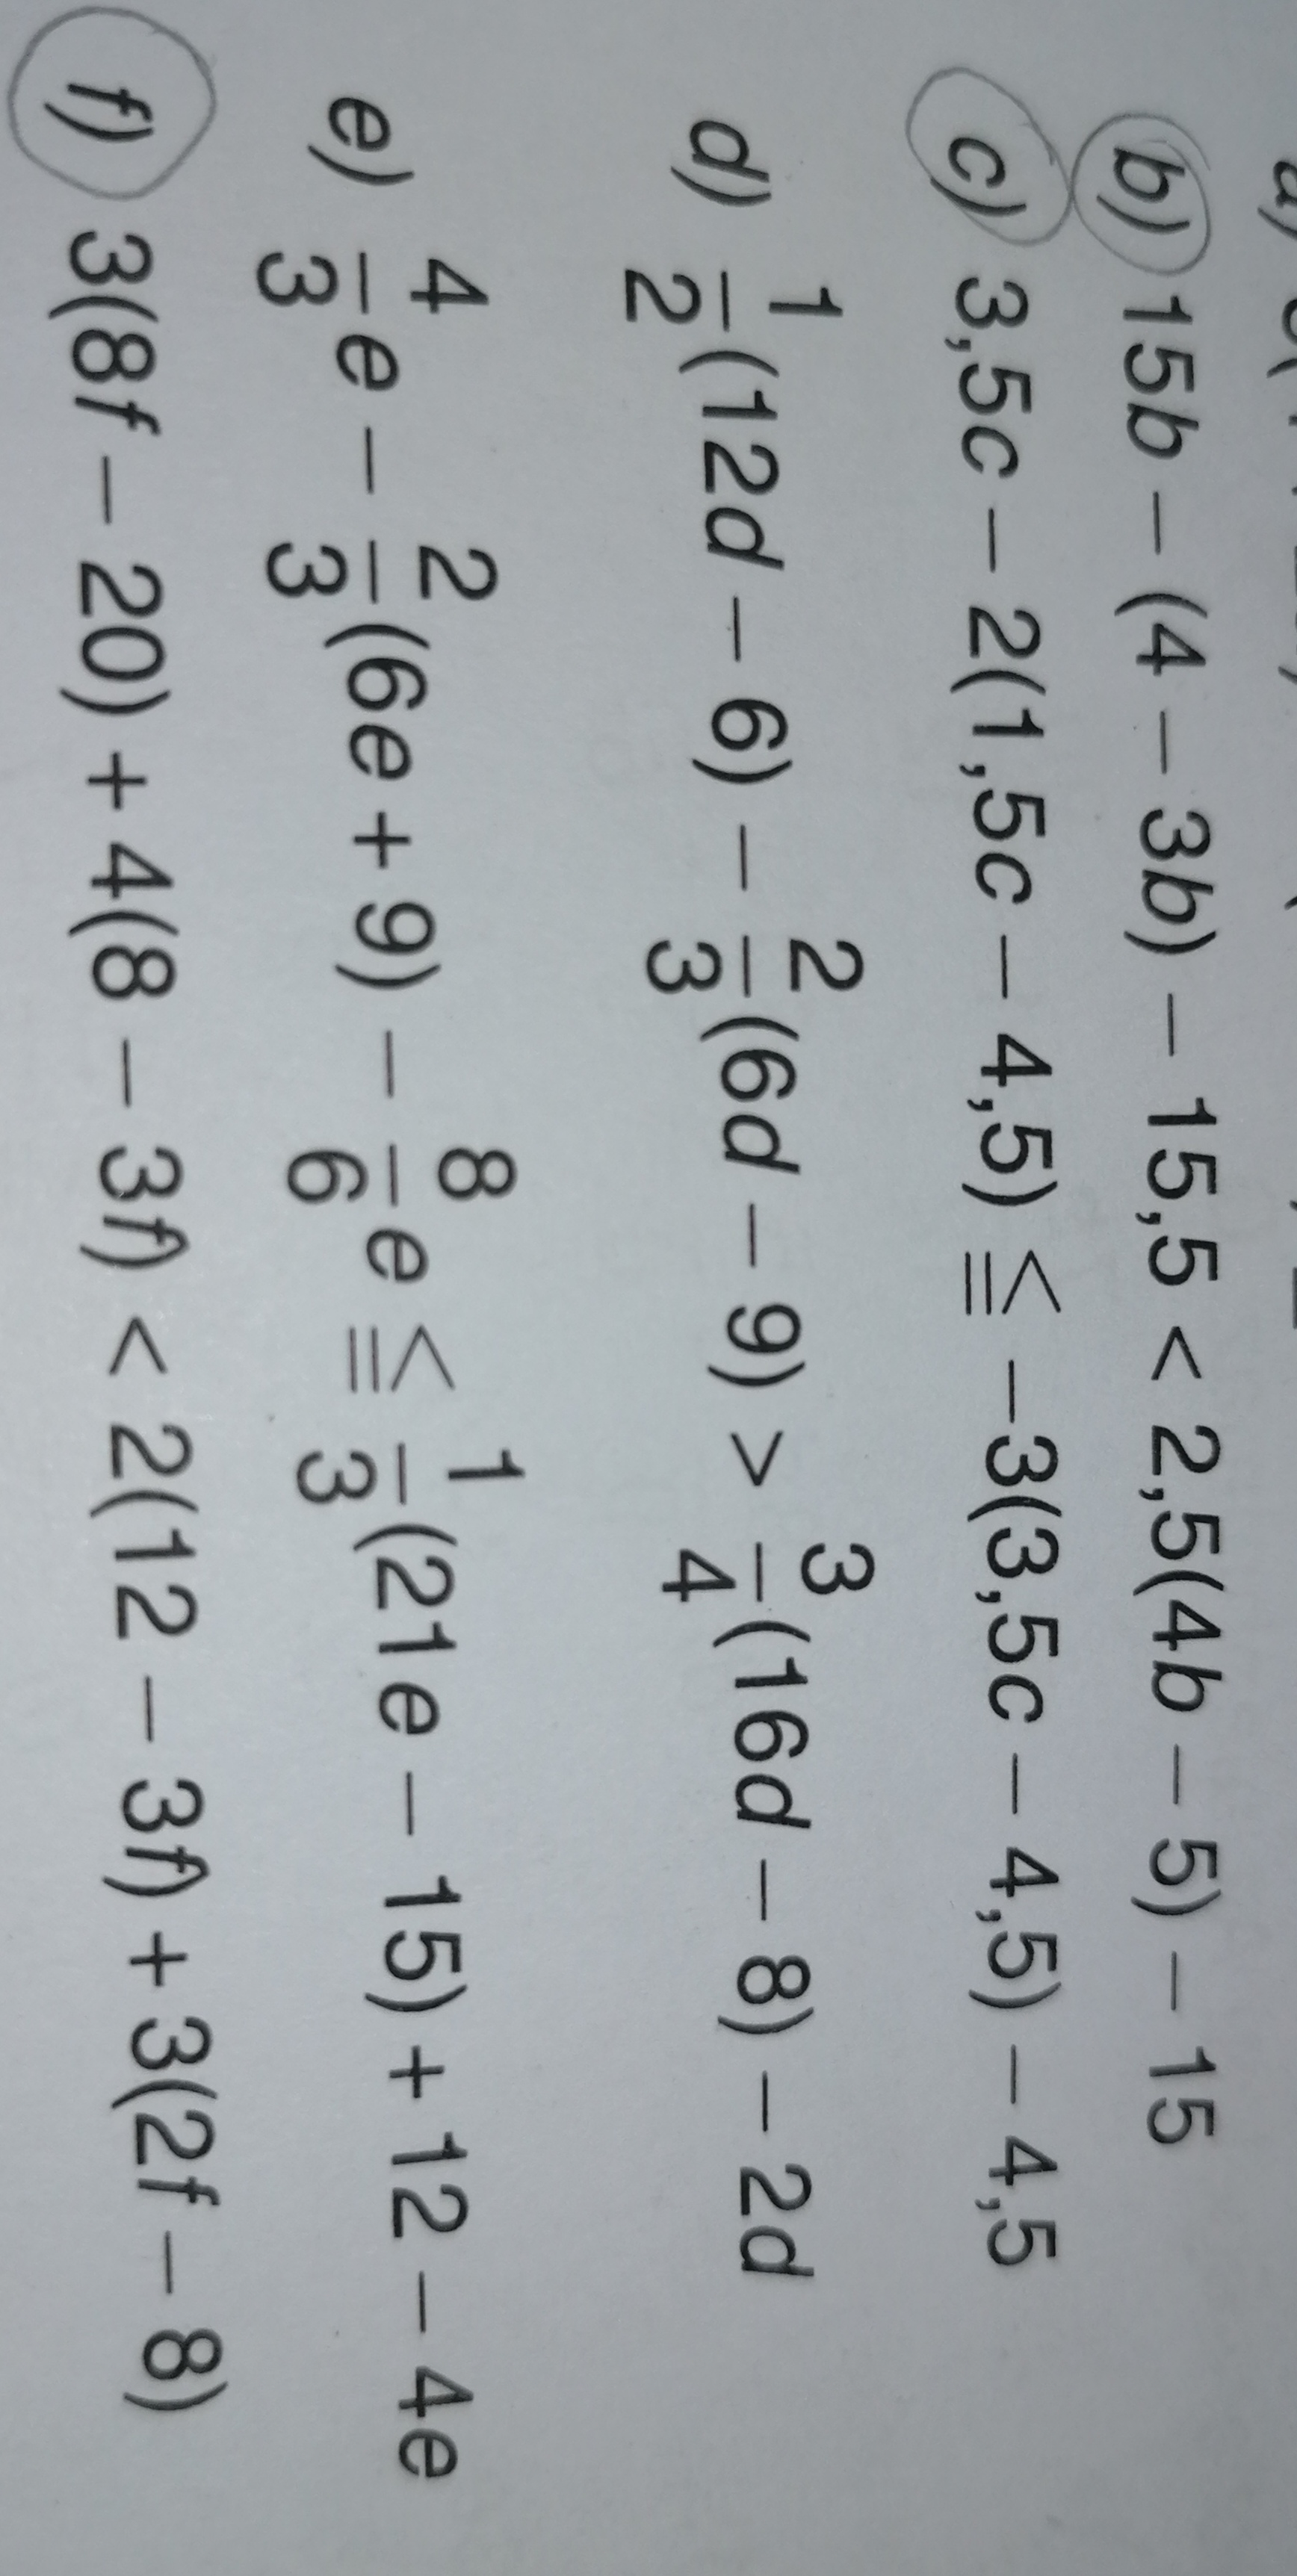 b) 15b − (4 − 3b) − 15,5 < 2,5(4b − 5) − 15
c) 3,5c − 2(1,5c − 4,5) ≦ −3(3,5c − 4,5) − 4,5
d) 1/2(12d − 6) − 2/3(6d − 9) > 3/4(16d − 8) − 2d
e) 4/3e − 2/3(6e + 9) − 8/6e ≦ 1/3(21e − 15) + 12 − 4e
f) 3(8f − 20) + 4(8 − 3f) < 2(12 − 3f) + 3(2f − 8)